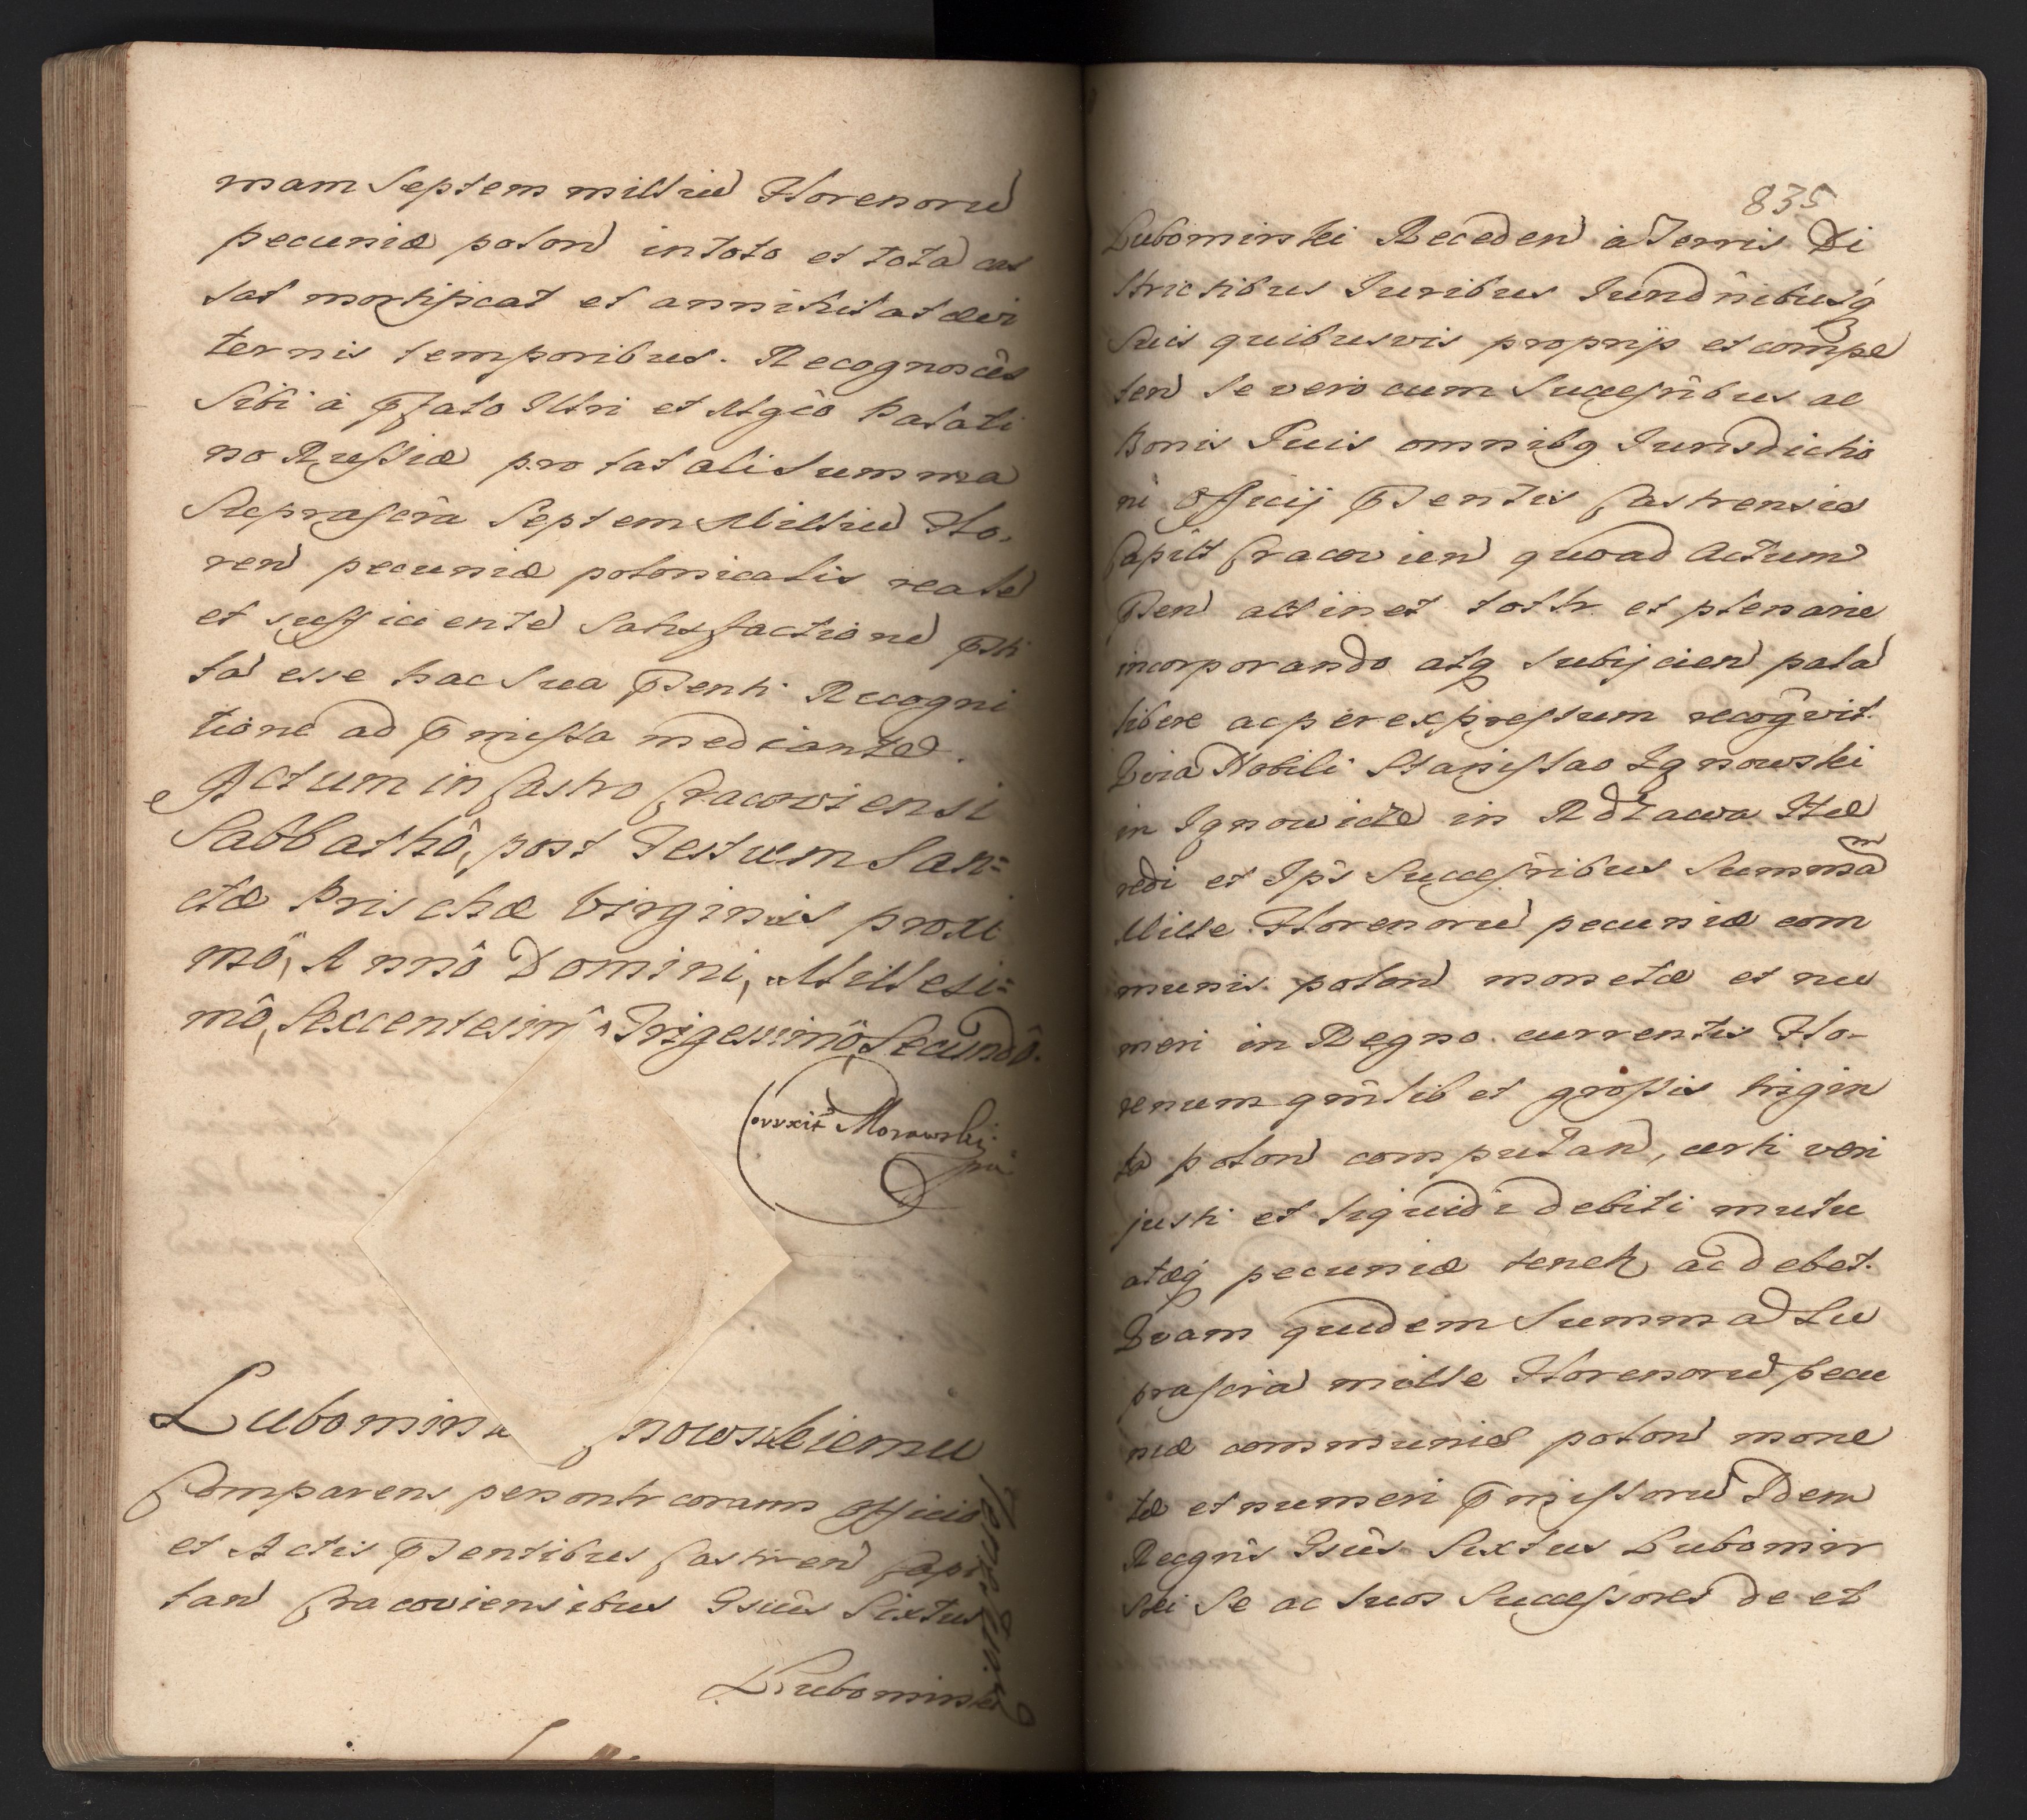 mam Septem milliu Florenoru
pecuniæ polon in toto et tota cas
sat mortificat et annihilat ævi
ternis temporibus. Recognoscês
Sibi à pfato Illri et Mgco Palati
no Russiæ pro tat ali summa
Suprascra Septem Milliu Flo-
ren pecuniæ polonicalis reale
et sufficiente satisfactione psti
ta esse hac sua psenti Recogni
tione ad pmissa mediante.
Actum in Castro Cracoviensi
Sabbathô, post Festum San=
ctæ Prischæ Virginis proxi
mô, Annô Domini, Millesi=
mô, Sexcentesimô Trigessimô Secundô.
Corrxit Morawski
mp
Lubomirs nowskiemu
Comparens personlr coram officio
et Actis psentibus Castren Capi
tan Cracoviensibus Gsûs Sixtus
Lubomirski
835
Lubomirski Receden à Terris Di
strictibus Iuribus Iurisdnibusq
Suis quibusvis proprijs et compe
ten se vero cum Successribus ac
Bonis Suis omnibq Iurisdictio
ni Officij psentis Castrensis
Capitt Cracovien quoad Actum
psen attinet totlr et plenarie
incorporando atq subijcien pala
libere ac per expressum recogvit.
Qvia Nobili Stanislao Ignowski
in Ignowicze in Rdzawa Hæ
redi et Ips Successribus Summam
Mille Florenoru pecuniæ com
munis polon monetæ et nu
meri in Regno currentis Flo-
renum qmlibet grossis trigin
ta polon computan, certi veri
justi et liquidi debiti mutu
atæq pecuniæ tenetr ac debet.
Qvam quidem Summa Su
prascra mille Florenoru pecu
niæ communis polon mone
tæ et numeri pmissoru Idem
Recgns Gsûs Sixtus Lubomir
ski Se ac suos Successores de et